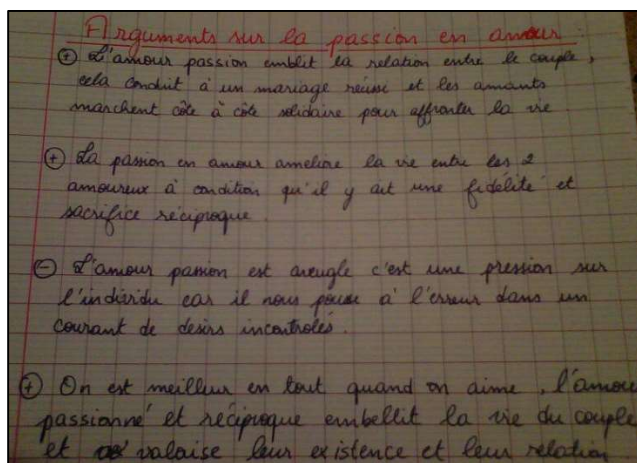 Arguments sur la passion en amour :
⊕ L'amour passion emblit la relation entre le couple,
cela conduit à un mariage réussi et les amants
marchent côte à côte solidaire pour affronter la vie
⊕ La passion en amour améliore la vie entre les 2
amoureux à condition qu'il y ait une fidélité et
sacrifice réciproque.
⊖ L'amour passion est aveugle c'est une pression sur
l'individu car il nous pousse à l'erreur dans un
courant de désirs incontrolés.
⊕ On est meilleur en tout quand on aime, l'amour
passionné et réciproque embellit la vie du couple
et valorise leur existence et leur relation